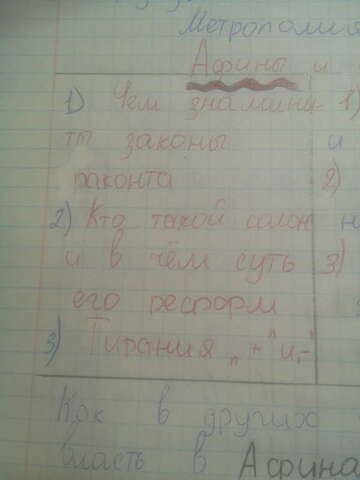 Метрополия
Афины и
1) Чем знамениты 1)
ты законы и
раконта 2)
2) Кто такой солон н
и в чём суть 3)
его реформ
3) Тирания „+" и „-"
Как в других
власть в Афина